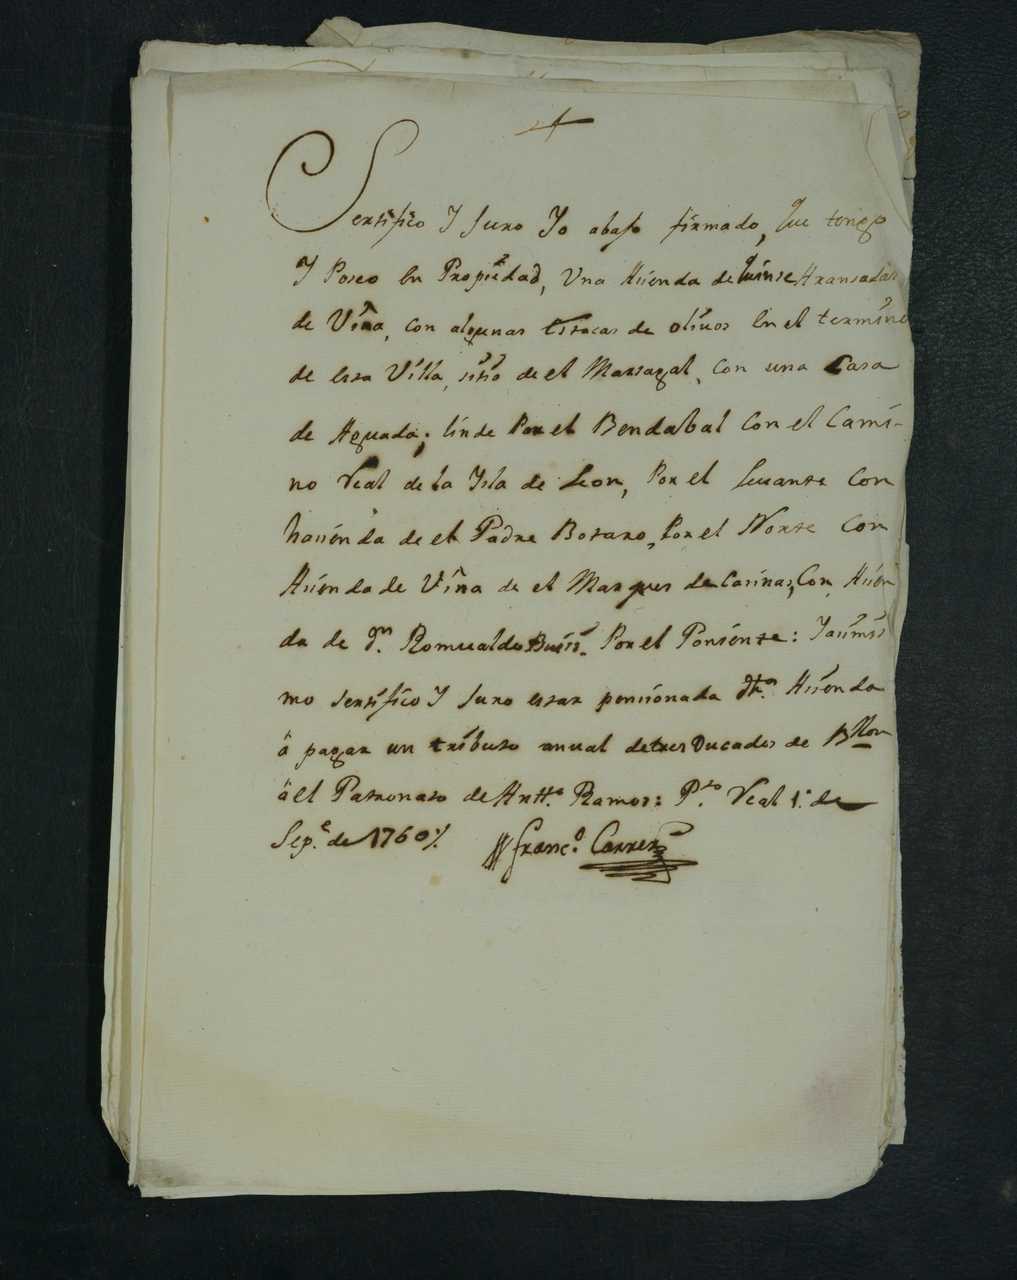 Sertifico Y Juro Yo abajo firmado, que tengo
Y Poseo en Propiedad, Una Hisenda de quinse Aransadas
de Viña, con algunas Estacas de olivos En el termino
de esta Villa, sitio de el Marsagal, con una Casa
de Aguada; linde Por el Bendabal Con el Cami-
no Real de la Isla de Leon, Por el Levante Con
hasienda de el Padre Botaro, Por el Norte Con
Hisenda de Viña de el Marques de Casinas, Con Hisen
da de Dn. Romualdo Por el Poniente: Yasimis
mo Sertifico Y Juro estar pensionada dha. Hisenda
â pagar un tributo anual de tres Ducados de Bllon
â el Patronato de Antto. Ramos: Pto. Real 1o. de
Sepe. de 1760%.
Franco. Carrera